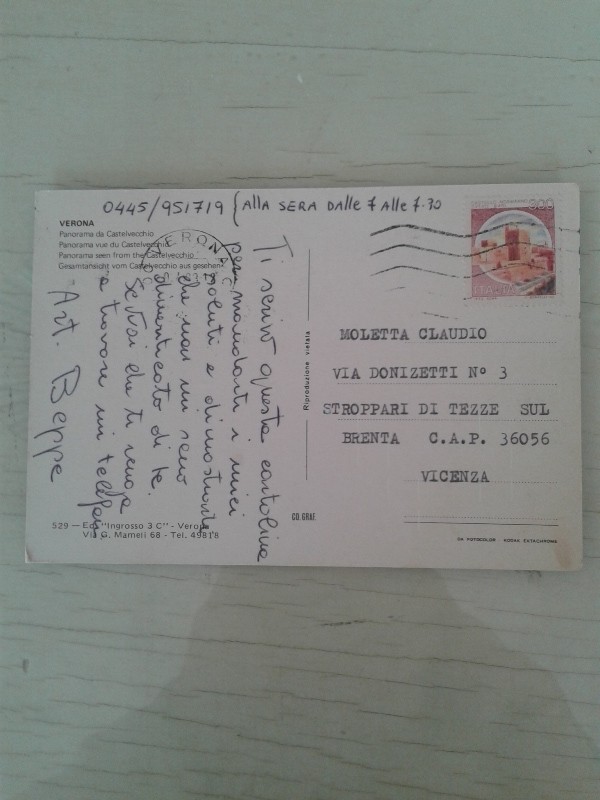 0445/951719 { ALLA SERA DALLE 7 ALLE 7.30
VERONA
Panorama da Castelvecchio
Panorama vue du Castelvecchio
Panorama seen from the Castelvecchio
Gesamtansicht vom Castelvecchio aus gesehen
VERONA
300
ITALIA
Ti scrivo questa cartolina
per mandarti i miei
saluti e dimostrarti
che non mi sono
dimenticato di te.
Se vuoi che ti venga
a trovare mi telefoni
Art. Beppe
Riproduzione vietata
MOLETTA CLAUDIO
VIA DONIZETTI Nº 3
STROPPARI DI TEZZE SUL
BRENTA C.A.P. 36056
VICENZA
529 — Ed. "Ingrosso 3 C" - Verona
Via G. Mameli 68 - Tel. 49818
CO. GRAF.
DA FOTOCOLOR - KODAK EKTACHROME